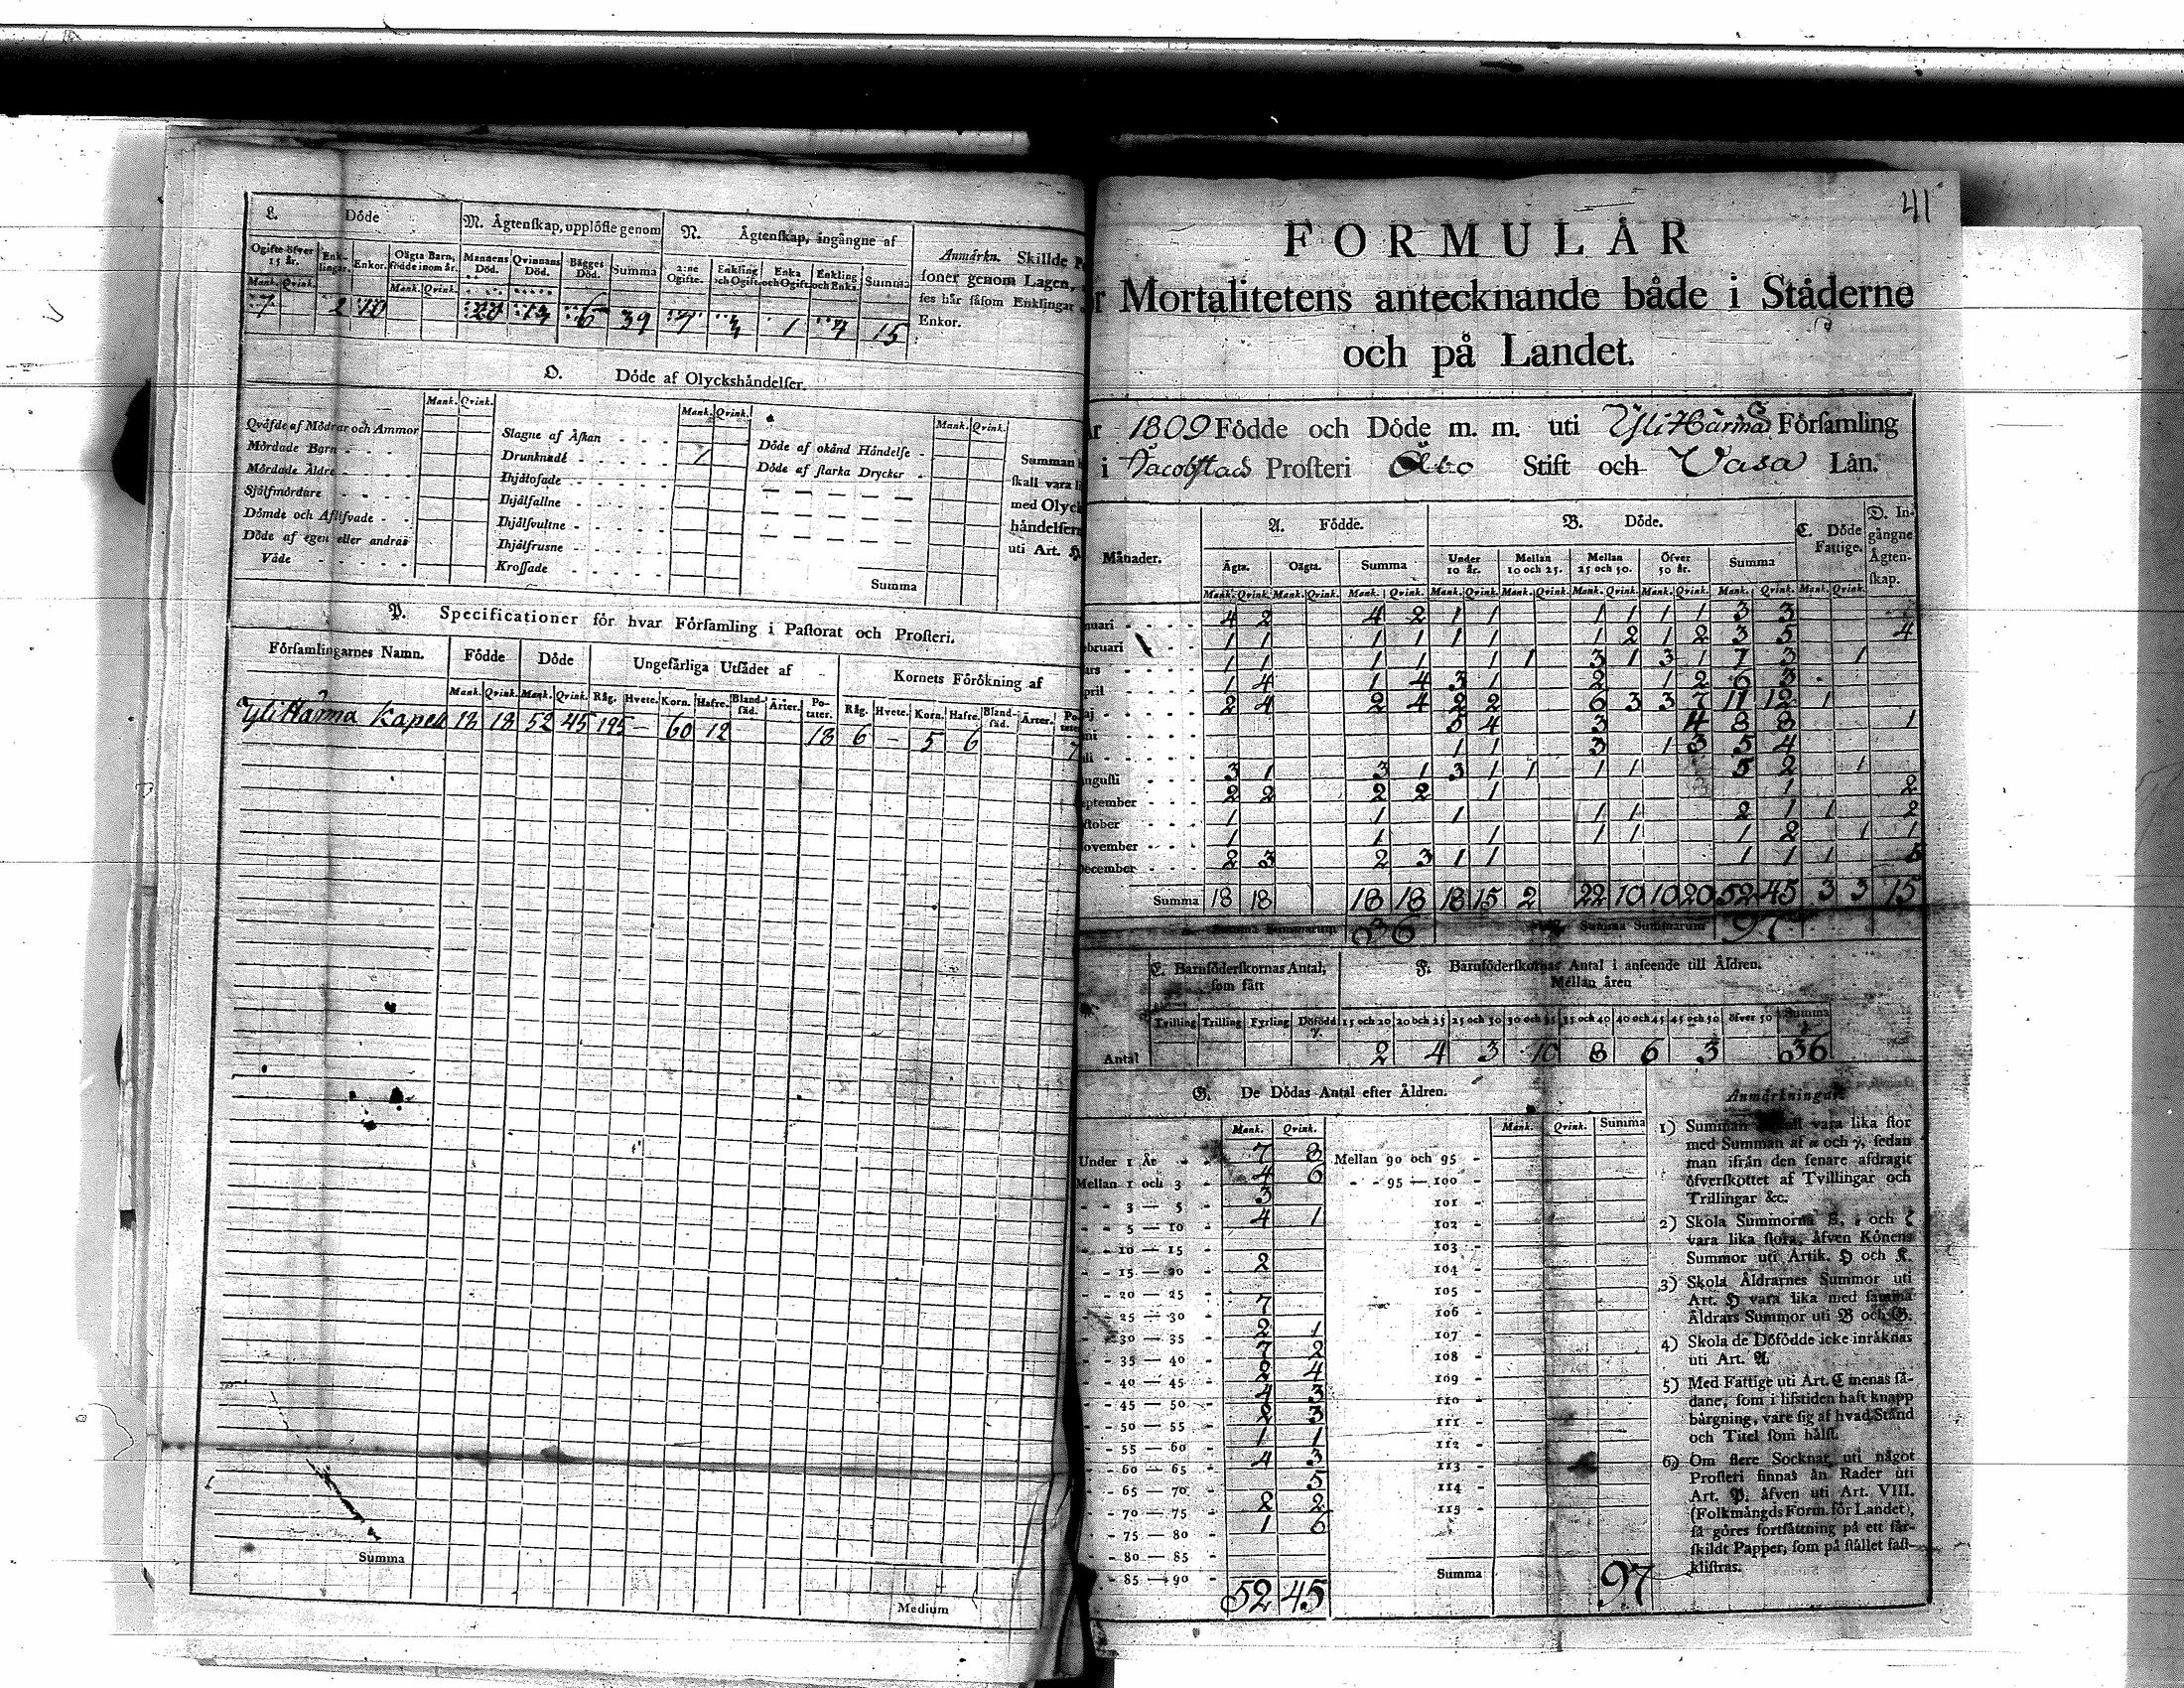 L. Döde
M. Ägtenſkap, upplöſte genom
N. Ägtenſkap, ingångne af
Ogifte öfver 15 år. Enklingar. Enkor. Oägta Barn, födde inom år. Mannens Död. Qvinnans Död. Bägges Död. Summa 2:ne Ogifte. Enkling och Ogift. Enka och Ogift. Enkling och Enka. Summa
Mank. Qvink. Mank. Qvink.
7 2 10 6 39 7 3 1 4 15
Anmärkn. Skillde
ſoner genom Lagen,
ſes här ſåſom Enklingar
Enkor.
O. Döde af Olyckshändelſer.
Mank. Qvink. Mank. Qvink. Mank. Qvink.
Qväfde af Mödrar och Ammor
Mördade Barn
Mördade Äldre
Sjelfmördare
Dömde och Aflifvade
Döde af egen eller andras
Våde
Slagne af Åſkan
Drunknade 1
Ihjälfallne
Ihjälfrusne
Kroſſade
Döde af okänd Händelſe
Döde af ſtarka Drycker
Summa
Summan
ſkall vara
med Olyck
händelſern
uti Art. H
P. Specificationer för hvar Förſamling i Paſtorat och Proſteri.
Förſamlingarnes Namn. Födde Döde Ungefärliga Utſädet af Kornets Förökning af
Mank. Qvink. Mank. Qvink. Råg. Hvete. Korn. Hafre. Blandſäd. Ärter. Potater. Råg. Hvete. Korn. Hafre. Blandſäd. Ärter.
Yli Härmä Kapell 18 18 52 45 195 — 60 12 18 6 — 5 6 7
Summa
Medium
41
FORMULÄR
r Mortalitetens antecknande både i Städerne
och på Landet.
År 1809 Födde och Döde m. m. uti Yli Härmä Förſamling
i Jacobſtads Proſteri Åbo Stift och Vasa Län.
Månader. A. Födde. B. Döde. C. Döde Fattige. D. Ingångne Ägtenſkap.
Ägta. Oägta. Summa Under 10 år. Mellan 10 och 25. Mellan 25 och 50. Öfver 50 år. Summa
Mank. Qvink. Mank. Qvink. Mank. Qvink. Mank. Qvink. Mank. Qvink. Mank. Qvink. Mank. Qvink. Mank. Qvink. Mank. Qvink.
nuari 4 2 4 2 1 1 1 1 1 1 3 3
ebruari 1 1 1 1 1 1 1 2 1 2 3 5 4
ars 1 1 1 1 1 1 3 1 3 1 7 3 1
pril 1 4 1 4 3 1 2 1 2 6 3
aj 2 4 2 4 2 2 6 3 3 7 11 12 1
ni 5 4 3 4 8 8 1
li 1 1 3 1 3 5 4
uguſti 3 1 3 1 3 1 1 1 1 5 2 1
eptember 2 2 2 2 1 1 2
ktober 1 1 1 1 1 2 1 1 2
ovember 1 1 1 1 1 1 2 1 1
December 2 3 2 3 1 1 1 1 1 5
Summa 18 18 18 18 18 15 2 22 10 10 20 52 45 3 3 15
Summa Summarum 36 Summa Summarum 97
E. Barnföderſkornas Antal, ſom fått
F. Barnföderſkornas Antal i anſeende till Åldren.
Mellan åren
Tvilling Trilling Fyrling Döfödd 15 och 20 20 och 25 25 och 30 30 och 35 35 och 40 40 och 45 45 och 50 öfver 50 Summa
Antal 2 4 3 10 8 6 3 36
G. De Dödas Antal efter Åldren.
Mank. Qvink. Mank. Qvink. Summa
Under 1 År 7 8
Mellan 1 och 3 4 6
3 — 5 3
5 — 10 4 1
10 — 15
15 — 20 2
20 — 25
25 — 30 7
30 — 35 2 1
35 — 40 7 2
40 — 45 2 4
45 — 50 4 3
50 — 55 2 3
55 — 60 1 1
60 — 65 4 3
65 — 70 5
70 — 75 2 2
75 — 80 1 6
80 — 85
85 — 90
52 45
Mellan 90 och 95
95 — 100
101
102
103
104
105
106
107
108
109
110
111
112
113
114
115
Summa 97
Anmärkningar.
1) Summan ſkall vara lika ſtor
med Summan af α och γ, ſedan
man ifrån den ſenare afdragit
öfverſkottet af Tvillingar och
Trillingar &c.
2) Skola Summorna β, ε och ζ
vara lika ſtora, äfven Könens
Summor uti Artik. H och K.
3) Skola Åldrarnes Summor uti
Art. H vara lika med ſamma
Åldrars Summor uti B och G.
4) Skola de Döfödde icke inräknas
uti Art. A.
5) Med Fattige uti Art. C menas ſådane,
ſom i lifstiden haft knapp
bärgning, vare ſig af hvad Stånd
och Titel ſom hälſt.
6) Om flere Socknar uti något
Proſteri finnas än Rader uti
Art. P, äfven uti Art. VIII.
(Folkmängds Form. för Landet),
ſå göres fortſättning på ett ſärſkildt
Papper, ſom på ſtället faſtkliſtras.